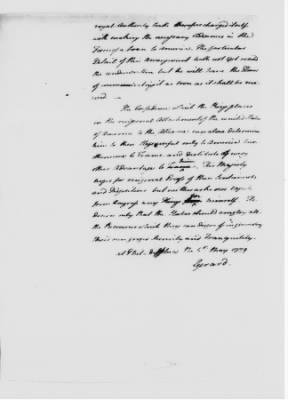 royal Authority hath therefore charged itself
with making the necessary Advances in the
Form of a Loan to America. The particular
Detail of this Arrangement hath not yet reach'd
the underwritten but he will have the Honor
of communicating it as soon as it shall be rec-
eived
The Confidence which the King places
in the reciprocal Attachment of the united States
of America to the Alliance can alone determine
him to these Steps useful only to America bur-
thensome to France and destitute of every
other Advantage to France. His Majesty
hopes for reciprocal Proofs of these Sentiments
and Dispositions but neither asks nor expects
from Congress any Thing for himself. He
desires only that the States should employ all
the Resources which they can devise of in procuring
their own proper Security and Tranquility.
at Philadelphia the 4th May 1779
Gerard.